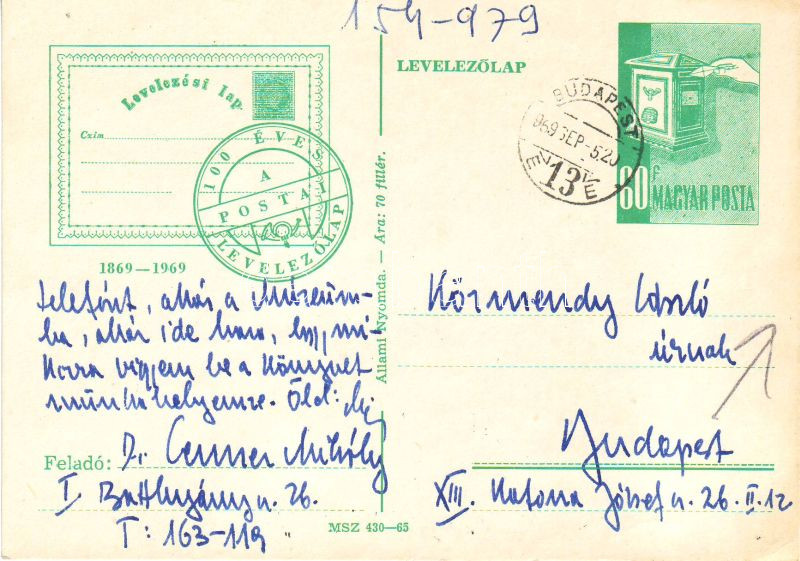 154-979
LEVELEZŐLAP
Levelezési lap.
Czim
100 ÉVES
A
POSTAI
LEVELEZŐLAP
1869—1969
BUDAPEST
969 SEP -5.20
13
60 f
MAGYAR POSTA
Állami Nyomda. — Ára: 70 fillér.
telefónt, akár a Múzeum-
ba, akár ide haza, hogy mi-
korra vigyem be a könyvet
munkahelyemre. Üdv:
Feladó: Dr. Cenner Mihály
I. Batthyány u. 26.
T: 163-119
MSZ 430—65
Körmendy László
úrnak
Budapest
XIII. Katona József u. 26. II. 12